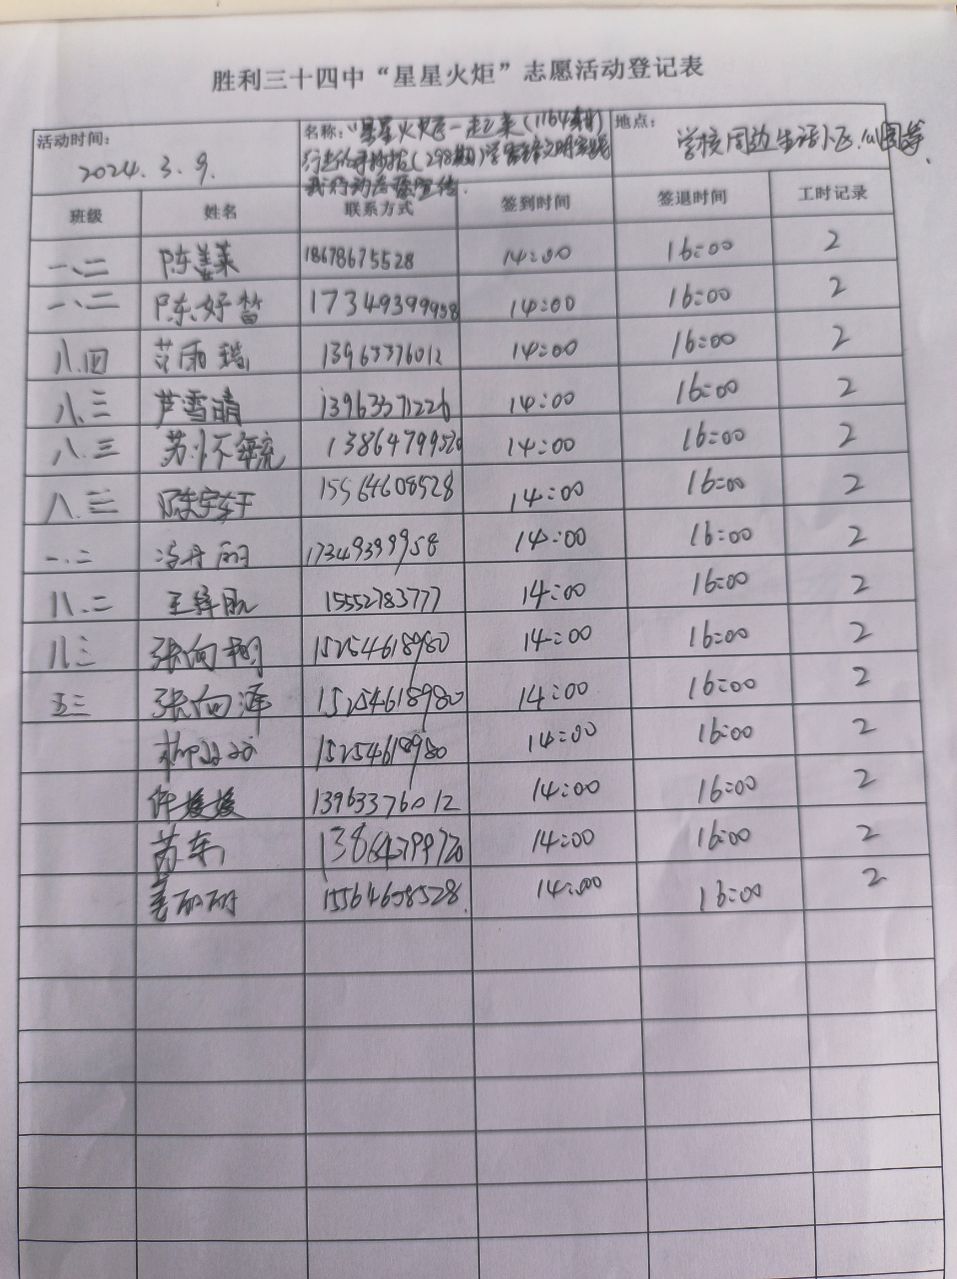 胜利三十四中“星星火炬”志愿活动登记表
活动时间： 2024.3.9.
名称：星星火炬一起来(1164期)
地点： 学校周边生活小区、公园等.
班级 姓名 联系方式 签到时间 签退时间 工时记录
一、二 陈善莱 18678675528 14:00 16:00 2
一、二 陈好哲 17349399958 14:00 16:00 2
八.四 范雨瑶 13963376012 14:00 16:00 2
八.三 芦雪晴 13963371226 14:00 16:00 2
八.三 苏怀 13864799520 14:00 16:00 2
八.三 陈宇轩 15564608528 14:00 16:00 2
一.二 冷丹丽 17349399958 14:00 16:00 2
八.二 王 15552783777 14:00 16:00 2
八三 张向翔 15254618980 14:00 16:00 2
五三 张向泽 15254618980 14:00 16:00 2
柳 15254618980 14:00 16:00 2
许媛媛 13963376012 14:00 16:00 2
苏东 14:00 16:00 2
姜丽丽 15564608528 14:00 16:00 2